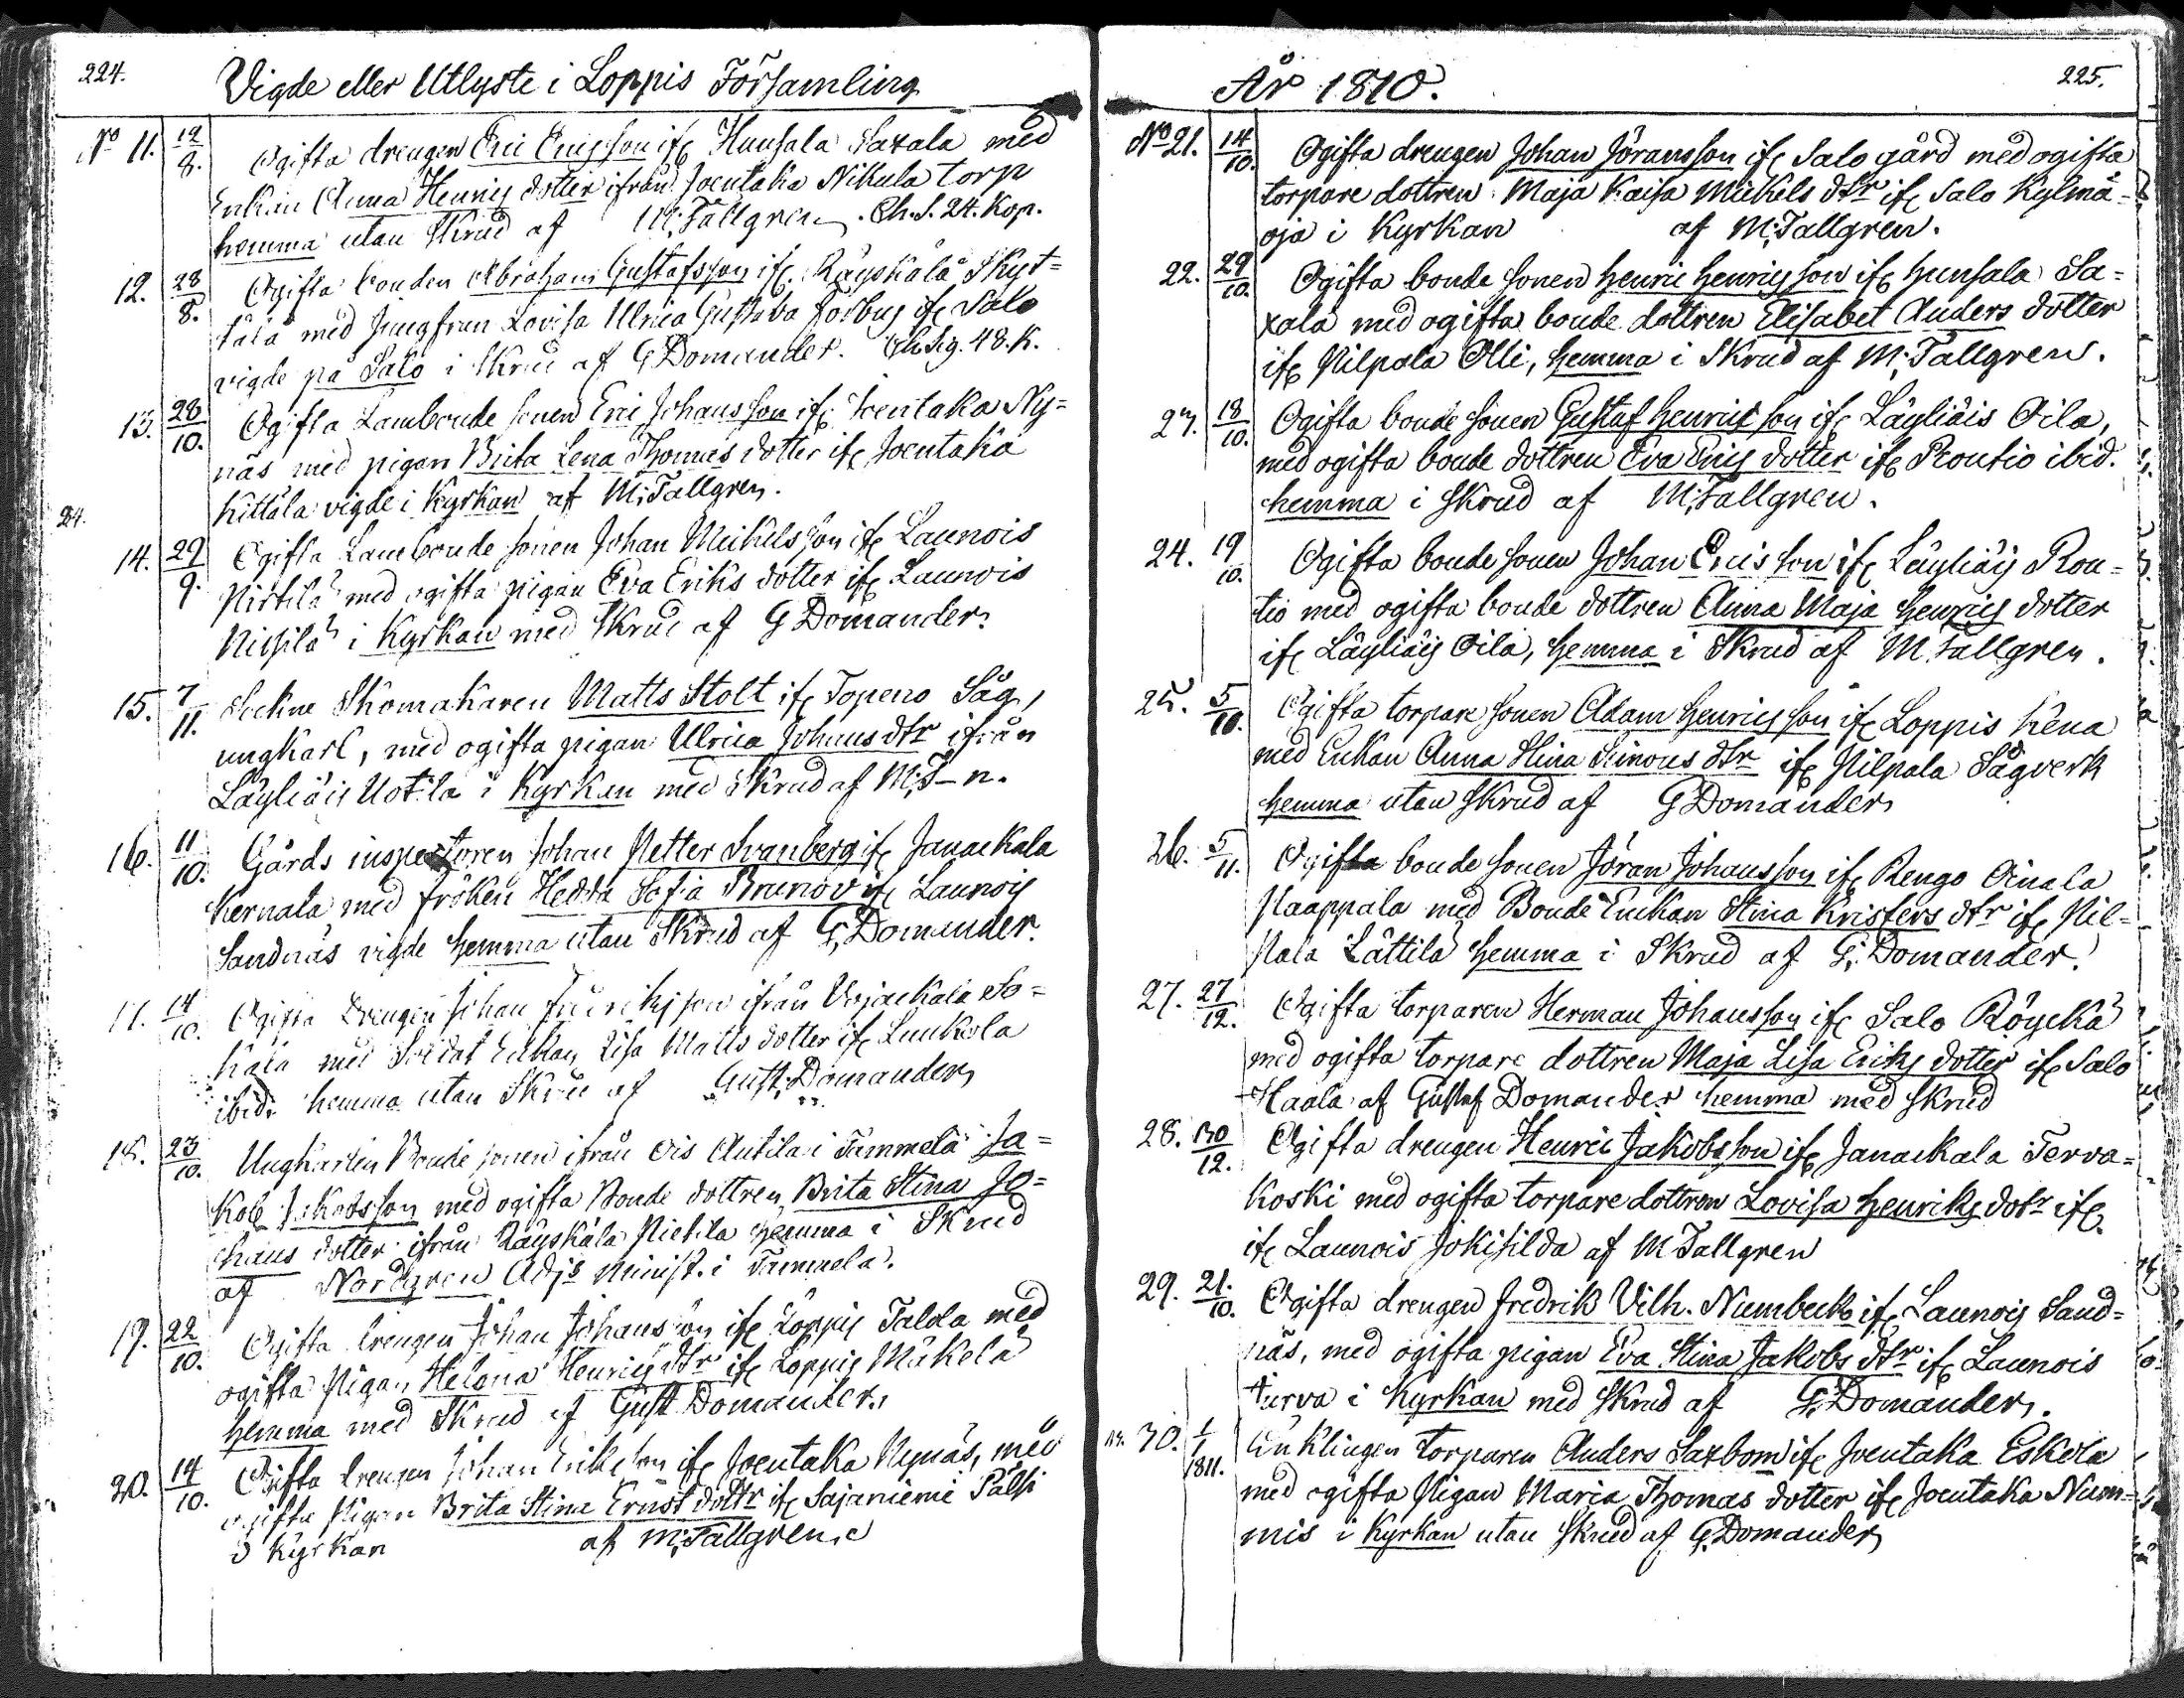 224.
Vigde eller Utlyste i Loppis Församling
No 11. 12/8. Ogifta drengen Eric Ericsson ifr Hunsala Saxala med
Enkan Anna Henrics dotter ifrån Joentaka Nikula torp
hemma utan Skrud af M. Tallgren. Ch. S. 24. Kop.
12. 28/8. Ogifta bonden Abraham Gustafsson ifr. Räyskälä Skyt=
tälä med Jungfrun Lovisa Ulrica Gustava Forbus ifr Salo
vigde på Salo i Skrud af G Domander. Ch. Sig. 48. K.
13. 28/10. Ogifta Lambonde sonen Eric Johansson ifr Joentaka Ny=
näs med pigan Brita Lena Thomas dotter ifr Joentaka
Kittälä vigde i Kyrkan af M; Tallgren.
24.
14. 29/9. Ogifta Lambonde sonen Johan Mickelsson ifr Launois
Pirtilä med ogifta pigan Eva Eriks dotter ifr Launois
i Kyrkan med Skrud af G Domander.
15. 7/11. Sockne Skomakaren Matts Stolt ifr Topeno Såg,
ungkarl, med ogifta pigan Ulrica Johans dtr ifrån
Läyliäis Uotila i Kyrkan med Skrud af M; T-n.
16. 11/10. Gårds inspectoren Johan Petter Svanberg ifr Janackala
Kernala med fröken Hedda Sofia Brunov ifr Launois
Sandnäs vigde hemma utan Skrud af G; Domander.
17. 14/10. Ogifta Drengen Johan Fredriksson ifrån Vojackala So=
hala med Soldat Enkan Lisa Matts dotter ifr Lunkola
ibid: hemma utan Skrud af Gust: Domander
18. 23/10. Ungkarlen Bonde sonen ifrån Ois Antila i Tammela Ja=
kob Jakobsson med ogifta Bonde dottren Brita Stina Jo=
hans dotter ifrån Räyskälä Pietila hemma i Skrud
af Nordgren Adj: Minist. i Tammela.
19. 22/10. Ogifta drengen Johan Johansson ifr Loppis Talola med
ogifta Pigan Helena Henrics dtr ifr Loppis Mäkelä
hemma med Skrud af Gust Domander.
20. 14/10. Ogifta drengen Johan Eriksson ifr Joentaka Nynäs, med
ogifta Pigan Brita Stina Ernst dottr ifr Sajaniemi Pälsi
i Kyrkan af M; Tallgren.
År 1810.
225.
No 21. 14/10. Ogifta drengen Johan Jöransson ifr Salo gård med ogifta
torpare dottren Maja Kaisa Mickels dtr ifr Salo Kylmä=
oja i Kyrkan af M; Tallgren.
22. 29/10. Ogifta bonde sonen Henric Henricsson ifr Hunsala Sa=
xala med ogifta bonde dottren Elisabet Anders dotter
ifr Pilpala Olli, hemma i Skrud af M. Tallgren.
23. 18/10. Ogifta bonde sonen Gustaf Henricsson ifr Läyliäis Oila,
med ogifta bonde dottren Eva Erics dotter ifr Routio ibid.
hemma i skrud af M; Tallgren.
24. 19/10. Ogifta bonde sonen Johan Ericsson ifr Läyliäis Rou=
tio med ogifta bonde dottren Anna Maja Henrics dotter
ifr Läyliäis Oila, hemma i Skrud af M. Tallgren.
25. 5/10. Ogifta torpare sonen Adam Henricsson ifr Loppis Kena
med Enkan Anna Stina Simons dtr ifr Pilpala Sågverk
hemma utan skrud af G Domander
26. 5/11. Ogifta bonde sonen Jöran Johansson ifr Rengo Oinala
Paappala med Bonde Enkan Stina Kristers dtr ifr Pil=
pala Lättilä hemma i Skrud af G; Domander.
27. 27/12. Ogifta torparen Herman Johansson ifr Salo Röyckä
med ogifta torpare dottren Maja Lisa Eriks dotter ifr Salo
Haala af Gustaf Domander hemma med skrud
28. 30/12. Ogifta drengen Henric Jakobsson ifr Janackala Terva=
koski med ogifta torpare dottren Lovisa Henriks dotr ifr
ifr Launois Jokisilda af M Tallgren
29. 21./10. Ogifta drengen Fredrik Vilh. Numbeck ifr Launois Sand=
näs, med ogifta pigan Eva Stina Jakobs dtr ifr Launois
turva i Kyrkan med skrud af G; Domander.
30. 1/1 1811. Enklingen torparen Anders Saxbom ifr Joentaka Eskola
med ogifta Pigan Maria Thomas dotter ifr Joentaka Num=
mis i Kyrkan utan skrud af G; Domander